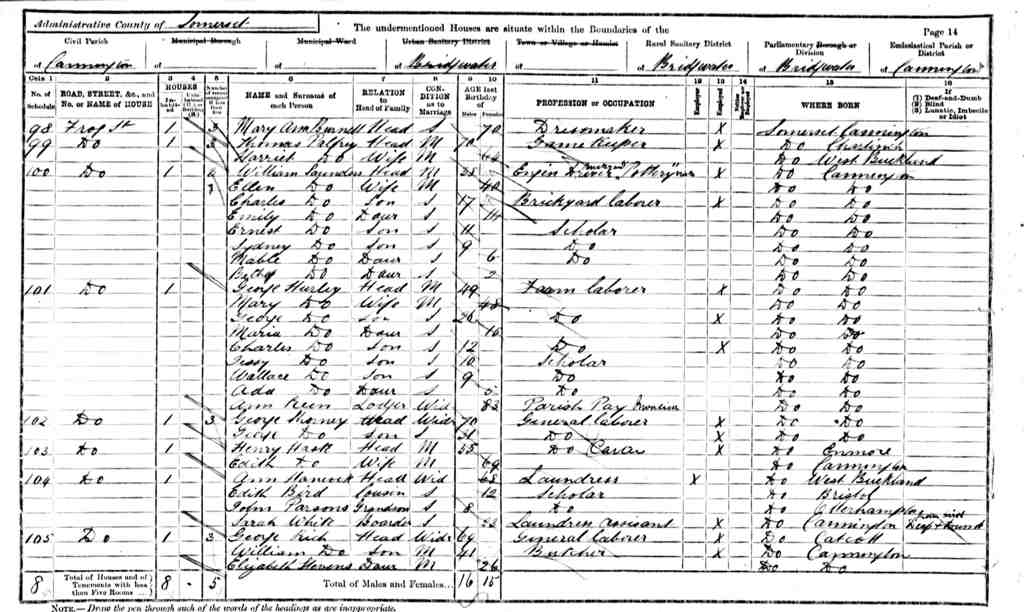 Administrative County of Somerset
The undermentioned Houses are situate within the Boundaries of the
Page 14
Civil Parish Municipal Borough Municipal Ward Urban Sanitary District Town or Village or Hamlet Rural Sanitary District Parliamentary Borough or Division Ecclesiastical Parish or District
of Cannington of of of Bridgwater of of Bridgwater of Bridgwater of Cannington
Cols 1 2 3 4 5 6 7 8 9 10 11 12 13 14 15 16
No. of Schedule ROAD, STREET, &c., and No. or NAME of HOUSE HOUSES NAME and Surname of each Person RELATION to Head of Family CONDITION as to Marriage AGE last Birthday of Males Females PROFESSION or OCCUPATION Employer Employed WHERE BORN If (1) Deaf-and-Dumb (2) Blind (3) Lunatic, Imbecile or Idiot
98 Frog St 1 3 Mary Ann Head S 70 Dressmaker X Somerset Cannington
99 Do 1 3 Thomas Palfrey Head M 70 Game Keeper X Do
Harriet Do Wife M Do West Buckland
100 Do 1 William Saunders Head M Engin Driver X Do Cannington
Ellen Do Wife M 40 Do Do
Charles Do Son S 17 Brickyard laborer X Do Do
Emily Do Daur S 14 Do Do
Ernest Do Son S 11 Scholar Do Do
Sydney Do Son S 9 Do Do Do
Mable Do Daur S 6 Do Do Do
Do Daur S 2 Do Do
101 Do 1 George Hurley Head M 49 Farm laborer X Do Do
Mary Do Wife M 48 Do Do
George Do Son S 26 Do X Do Do
Maria Do Daur S Do Do
Charles Do Son S 12 Do X Do Do
Jessy Do Son S 10 Scholar Do Do
Wallace Do Son S 9 Do Do Do
Ada Do Daur S 5 Do Do Do
Ann Lodger Wid 83 Parish Pay Do Do
102 Do 1 3 George Head Widr 70 General laborer X Do Do
George Do Son S 31 Do X Do Do
103 Do 1 Henry Head M 55 Do X Do Enmore
Edith Do Wife M 69 Do Cannington
104 Do 1 Ann Hancock Head Wid 68 Laundress X Do West Buckland
Edith Bird Cousin S 12 Scholar Do Bristol
John Parsons Grandson S 8 Do Do Otterhampton
Sarah White Boarder S Laundress assisant X Do Cannington
105 Do 1 3 George Rich Head Widr 69 General laborer X Do Catcott
William Do Son M 41 Butcher X Do Cannington
Elizabeth Stevens Daur M 26 Do Do
8 Total of Houses and of Tenements with less than Five Rooms 8 - 5 Total of Males and Females... 16 15
NOTE.—Draw the pen through such of the words of the headings as are inappropriate.